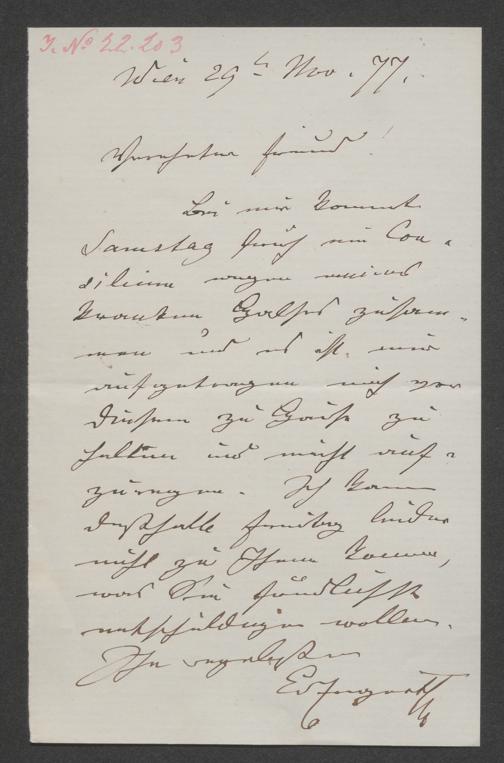 I. No 22.203
Wien 29t Nov. 77.
Verehrter Freund!
Bei mir kommt
Samstag früh ein Con-
silium wegen meines
kranken Halses zusam-
men und es ist mir
aufgetragen mich vor
diesem zu Hause zu
halten und nicht auf-
zuregen. Ich kann
deßhalb Freitag leider
nicht zu Ihnen kommen,
was Sie freundlichst
entschuldigen wollen.
Ihr ergebenster